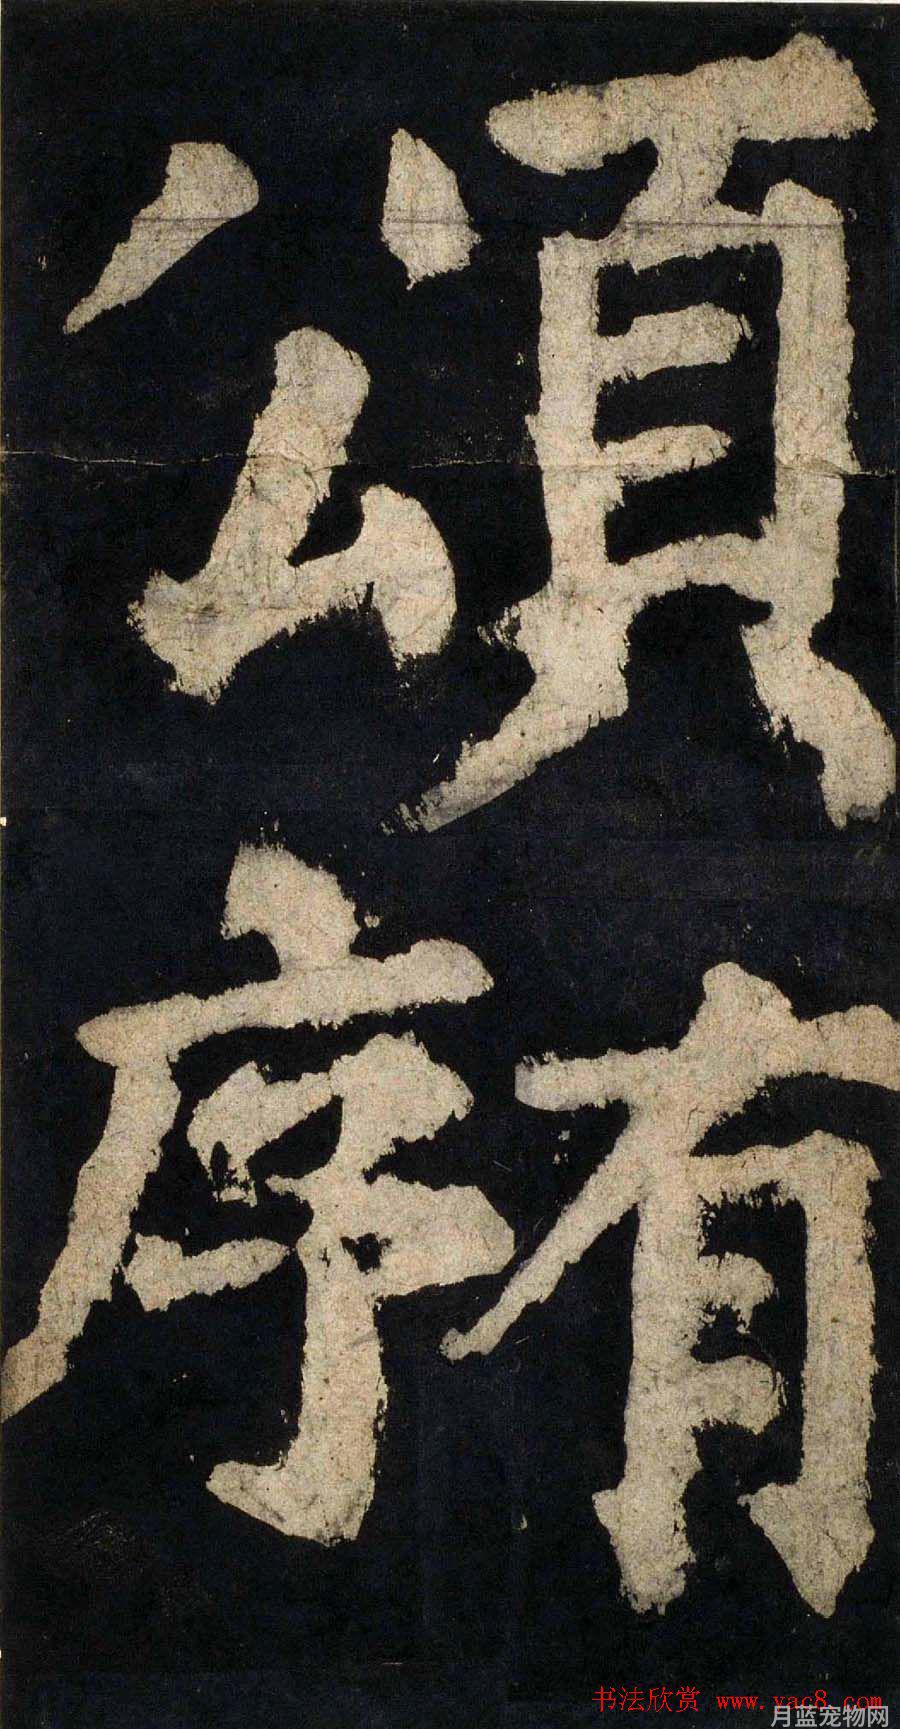 頌
有
序
书法欣赏 www.yac8.com
月蓝宠物网